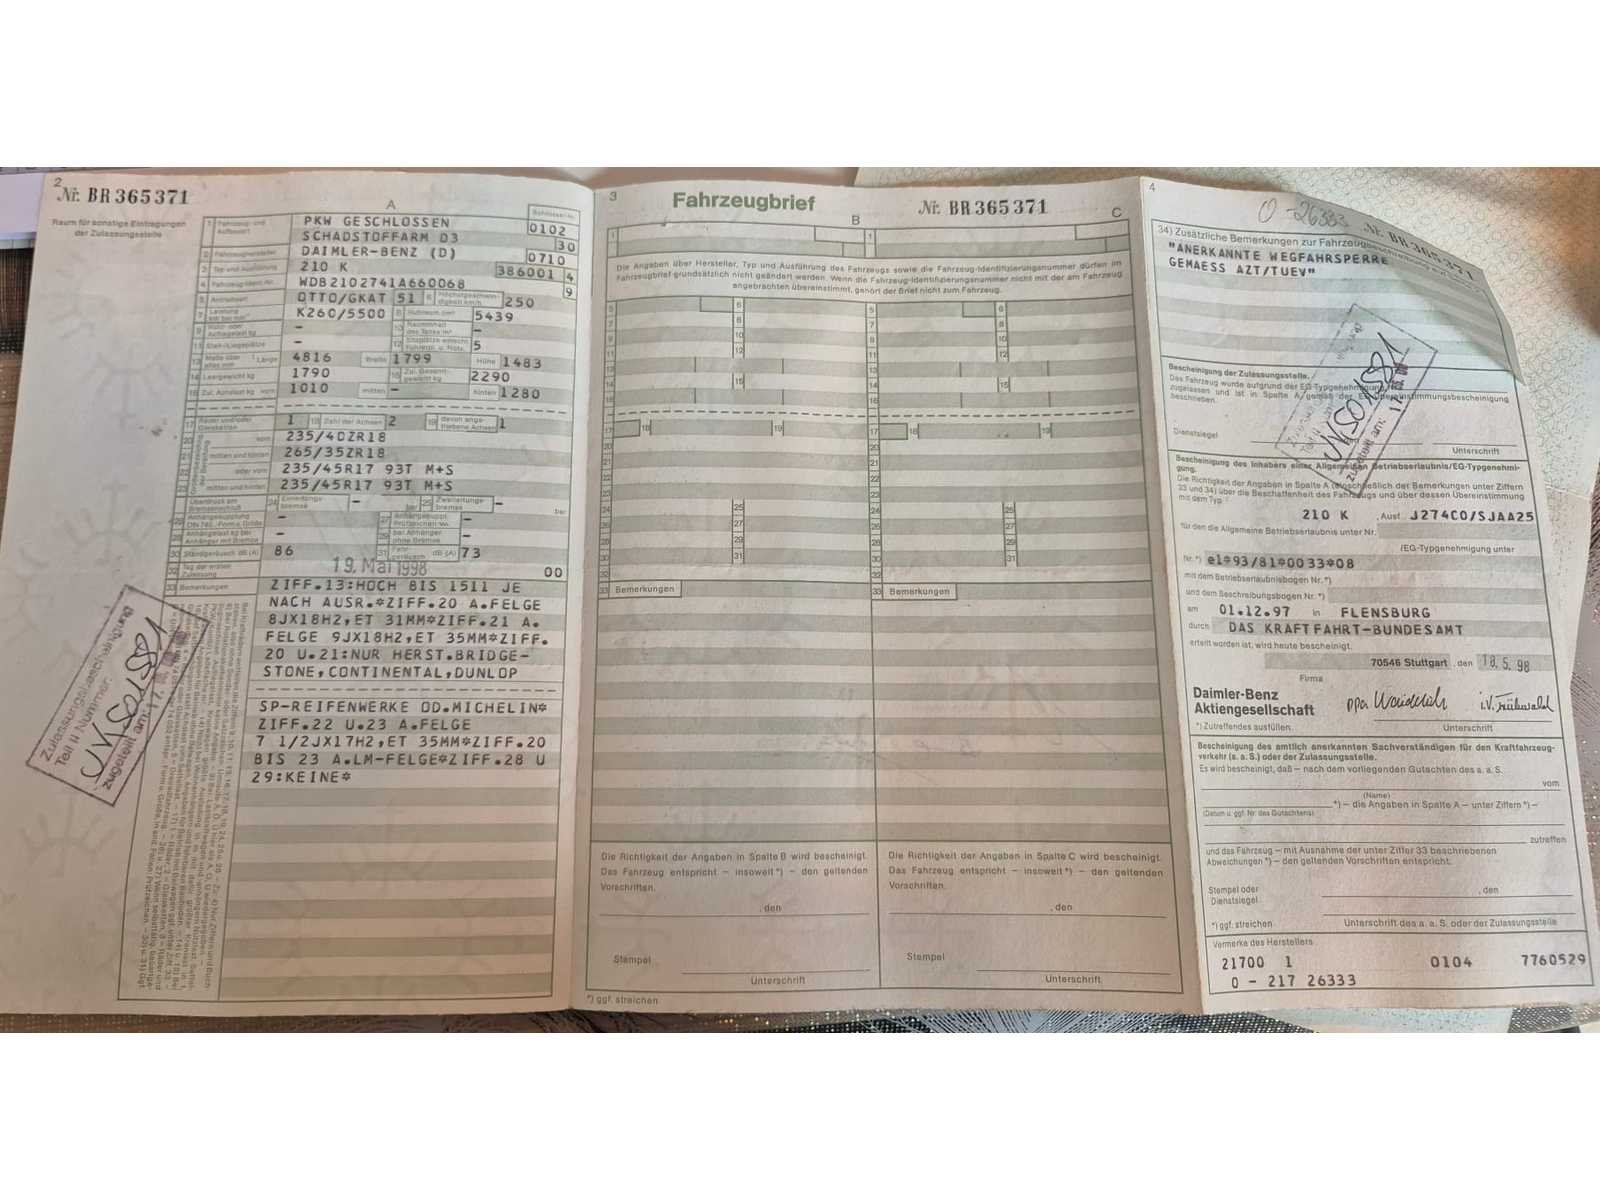 2
Nr. BR365371
Raum für sonstige Eintragungen
der Zulassungsstelle
A
PKW GESCHLOSSEN 0102
SCHADSTOFFARM D3 30
DAIMLER-BENZ (D) 0710
210 K 386001 4
WDB2102741A660068 9
5 Antriebsart OTTO/GKAT 51 6 Höchstgeschwin-digkeit km/h 250
7 Leistung K260/5500 8 Hubraum cm³ 5439
- -
11 Steh-/Liegeplätze - 12 5
13 Maße über alles mm Länge 4816 Breite 1799 Höhe 1483
14 Leergewicht kg 1790 15 Zul. Gesamt-gewicht kg 2290
16 Zul. Achslast kg vorn 1010 mitten - hinten 1280
17 Räder und/oder Gleisketten 1 18 Zahl der Achsen 2 19 davon ange-triebene Achsen 1
20 vorn 235/40ZR18
21 mitten und hinten 265/35ZR18
22 oder vorn 235/45R17 93T M+S
23 mitten und hinten 235/45R17 93T M+S
Überdruck am Bremsanschluß 24 Einleitungs-bremse - bar 25 Zweileitungs-bremse - bar
26 - 27 -
28 Anhängelast kg bei Anhänger mit Bremse - 29 bei Anhänger ohne Bremse -
30 Standgeräusch dB (A) 86 31 Fahr-geräusch dB (A) 73
32 Tag der ersten Zulassung 19. Mai 1998 00
33 Bemerkungen ZIFF.13:HOCH BIS 1511 JE
NACH AUSR.*ZIFF.20 A.FELGE
8JX18H2,ET 31MM*ZIFF.21 A.
FELGE 9JX18H2,ET 35MM*ZIFF.
20 U.21:NUR HERST.BRIDGE-
STONE,CONTINENTAL,DUNLOP
SP-REIFENWERKE OD.MICHELIN*
ZIFF.22 U.23 A.FELGE
7 1/2JX17H2,ET 35MM*ZIFF.20
BIS 23 A.LM-FELGE*ZIFF.28 U
29:KEINE*
Zulassungsbescheinigung
Teil II Nummer:
zugeteilt am: 17.
3
Fahrzeugbrief
B
Nr. BR365371
C
Die Angaben über Hersteller, Typ und Ausführung des Fahrzeugs sowie die Fahrzeug-Identifizierungsnummer dürfen im
Fahrzeugbrief grundsätzlich nicht geändert werden. Wenn die Fahrzeug-Identifizierungsnummer nicht mit der am Fahrzeug
angebrachten übereinstimmt, gehört der Brief nicht zum Fahrzeug.
33 Bemerkungen
33 Bemerkungen
Die Richtigkeit der Angaben in Spalte B wird bescheinigt.
Das Fahrzeug entspricht – insoweit *) – den geltenden
Vorschriften.
, den
Stempel
Unterschrift
*) ggf. streichen
Die Richtigkeit der Angaben in Spalte C wird bescheinigt.
Das Fahrzeug entspricht – insoweit *) – den geltenden
Vorschriften.
, den
Stempel
Unterschrift
4
O -26333
Nr. BR365371
34) Zusätzliche Bemerkungen zur
"ANERKANNTE WEGFAHRSPERRE
GEMAESS AZT/TUEV"
Bescheinigung der Zulassungsstelle.
Das Fahrzeug wurde aufgrund der EG-Typgenehmigung
zugelassen und ist in Spalte A gemäß der EG-Übereinstimmungsbescheinigung
beschrieben.
Dienstsiegel
Unterschrift
zugeteilt am:
Bescheinigung des Inhabers einer Allgemeinen Betriebserlaubnis/EG-Typgenehmi-
gung.
Die Richtigkeit der Angaben in Spalte A (einschließlich der Bemerkungen unter Ziffern
33 und 34) über die Beschaffenheit des Fahrzeugs und über dessen Übereinstimmung
mit dem Typ
210 K , Ausf. J274C0/SJAA25
für den die Allgemeine Betriebserlaubnis unter Nr.
/EG-Typgenehmigung unter
Nr. *) e1*93/81*0033*08
mit dem Betriebserlaubnisbogen Nr. *)
und dem Beschreibungsbogen Nr. *)
am 01.12.97 in FLENSBURG
durch DAS KRAFTFAHRT-BUNDESAMT
erteilt worden ist, wird heute bescheinigt.
70546 Stuttgart , den 18.5.98
Firma
Daimler-Benz
Aktiengesellschaft
ppa i.V.
Unterschrift
*) Zutreffendes ausfüllen.
Bescheinigung des amtlich anerkannten Sachverständigen für den Kraftfahrzeug-
verkehr (a. a. S.) oder der Zulassungsstelle.
Es wird bescheinigt, daß – nach dem vorliegenden Gutachten des a. a. S.
vom
(Name)
*) – die Angaben in Spalte A – unter Ziffern *) –
(Datum u. ggf. Nr. des Gutachtens)
zutreffen
und das Fahrzeug – mit Ausnahme der unter Ziffer 33 beschriebenen
Abweichungen *) – den geltenden Vorschriften entspricht.
Stempel oder
Dienstsiegel
, den
*) ggf. streichen
Unterschrift des a. a. S. oder der Zulassungsstelle
Vermerke des Herstellers
21700 1 0104 7760529
0 - 217 26333